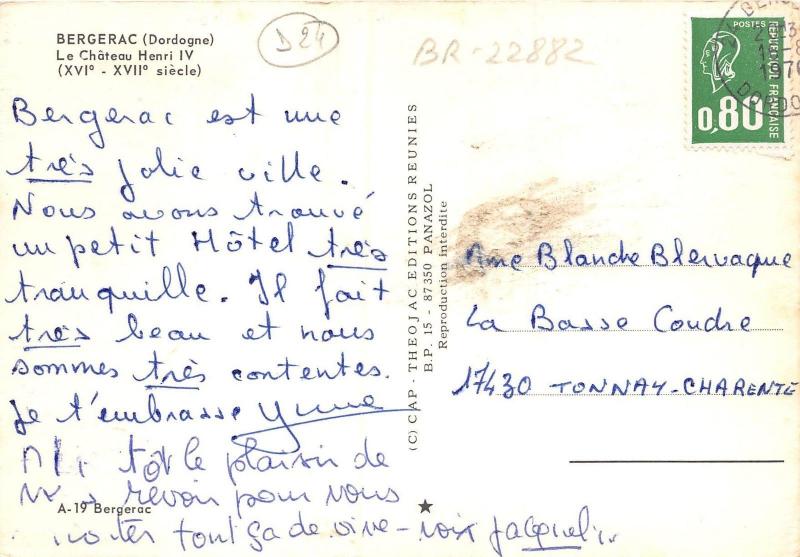 BERGERAC (Dordogne)
Le Château Henri IV
(XVI° - XVII° siècle)
D24
BR-22882
Bergerac est une
très jolie ville.
Nous avons trouvé
un petit Hôtel très
tranquille. Il fait
très beau et nous
sommes très contentes.
Je t'embrasse Yvonne
tôt le plaisir de
revoir pour vous
tout ça de vive-voix
A-19 Bergerac
(C) CAP - THEOJAC EDITIONS REUNIES
B.P. 15 - 87350 PANAZOL
Reproduction interdite
POSTES
REPUBLIQUE FRANÇAISE
0,80
Mme Blanche Blervaque
La Basse Coudre
17430 TONNAY-CHARENTE